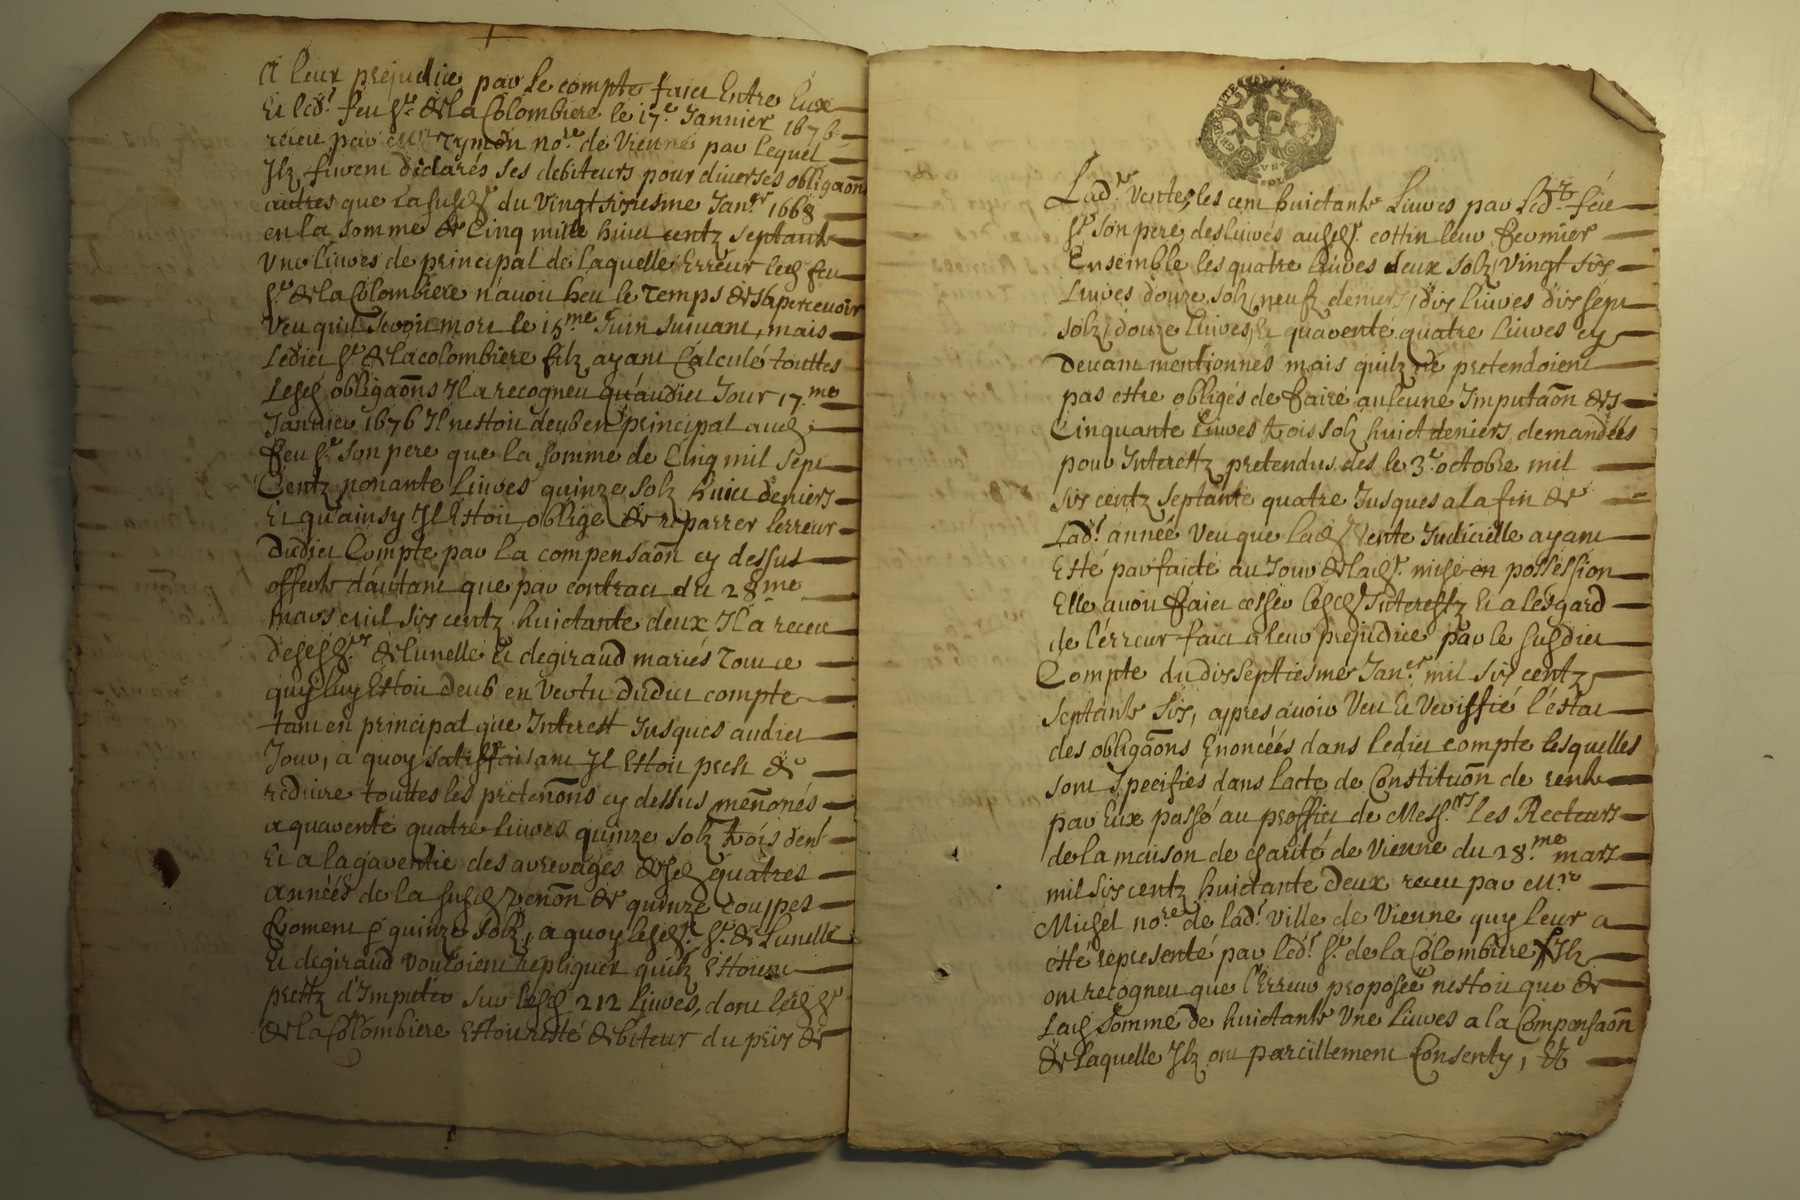 A leur prejudice par le compte faict Entre Eux
Et led.t feu s.r de la Colombiere le 17.e Jannier 1676
receu par M.re Aymon no.re de Vienne par lequel
Ilz furent declarés ses debiteurs pour diverses obligaōns
autres que la susd. du vingtsixiesme Jan.er 1668
en la somme de Cinq mille huict centz septante
Une livres de principal de laquelle Erreur led. feu
s.r de la Colombiere n'avoit heu le temps de s'apercevoir
Veu qu'il seroit mort le 15.me Juin suivant, mais
Ledict s.r de la colombiere filz ayant Calculé touttes
Lesd. obligaōns Il a recogneu qu'audict Jour 17.me
Janvier 1676 Il n'estoit deub en principal aud.
feu s.r son pere que la somme de Cinq mil sept
Centz nonante livres quinze solz huict deniers
Et qu'ainsy Il Estoit obligé de reparrer l'erreur
Dudict Compte par la compensaōn cy dessus
offerte d'autant que par contract du 28.me
mars mil six centz huictante deux Il a receu
Desd. s.rs de lunelle et degiraud mariés tout ce
quy luy Estoit deub en vertu dudict compte
tant en principal que Interest Jusques audict
Jour, a quoy satisffaisant Il Estoit prest de
reduire touttes les pretenōns cy dessus menōnés
a quarente quatre livres quinze solz trois den.
Et a la garentie des arrerages desd. quatres
années de la susd. penōn de quinze couppes
froment p quinze solz, a quoy lesd. s.r de Lunelle
Et degiraud vouloient repliquer quilz Estoient
prestz d'Imputer sur lesd. 212 livres, dont led. s.r
de la Colombiere Estoit resté debiteur du prix de
Lad.te Vente, les cent huictante Livres par led.t feu
s.r son pere deslivrés aud. s.r cottin leur fermier
Ensemble les quatre livres deux solz, vingt six
Livres douze solz neuf deniers, dix livres dix sept
solz, douze livres, et quarente quatre livres cy
Devant mentionnés mais quilz ne pretendoient
pas estre obligés de faire aulcune Imputaōn des
Cinquante livres trois solz huict deniers demandées
pour Interestz pretendus dés le 3.e octobre mil
six centz septante quatre Jusques a la fin de
Lad.t année Veu que lad. vente Judicielle ayant
Esté parfaicte au Jour de lad. mise en possession
Elle avoit faict cesser lesd. Interestz Et a lesgard
de l'erreur faict a leur prejudice par le susdict
Compte du dixseptiesme Jan.er mil six centz
septante six, appres avoir Veu et veriffié l'éstat
des obligaōns Enoncées dans ledict compte lesquelles
sont specifiés dans lacte de Constituōn de rente
par Eux passé au proffict de Mess.rs les Recteurs
de la maison de charité de Vienne du 28.me mars
mil six centz huictante deux receu par M.re
Michel no.re de lad.t ville de Vienne quy leur a
esté representé par led.t s.r de la Colombiere Ilz
ont recogneu que l'Erreur proposée n'estoit que de
Lad. somme de huictante Une livres a la Compensaōn
de laquelle Ilz ont pareillement Consenty, Et